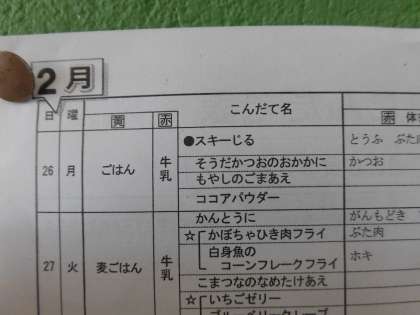 2月
日 曜 黄 赤 こんだて名 赤 体
26 月 ごはん 牛乳 ●スキーじる とうふ ぶた
そうだかつおのおかかに かつお
もやしのごまあえ
ココアパウダー
27 火 麦ごはん 牛乳 かんとうに がんもどき
☆ かぼちゃひき肉フライ ぶた肉
白身魚の
コーンフレークフライ ホキ
こまつなのなめたけあえ
☆ いちごゼリー
ブルーベリークレープ